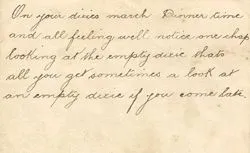 On your dixies march Dinner time
and all feeling well notice one chap
looking at the empty dixie thats
all you get sometimes a look at
an empty dixie if you come late.